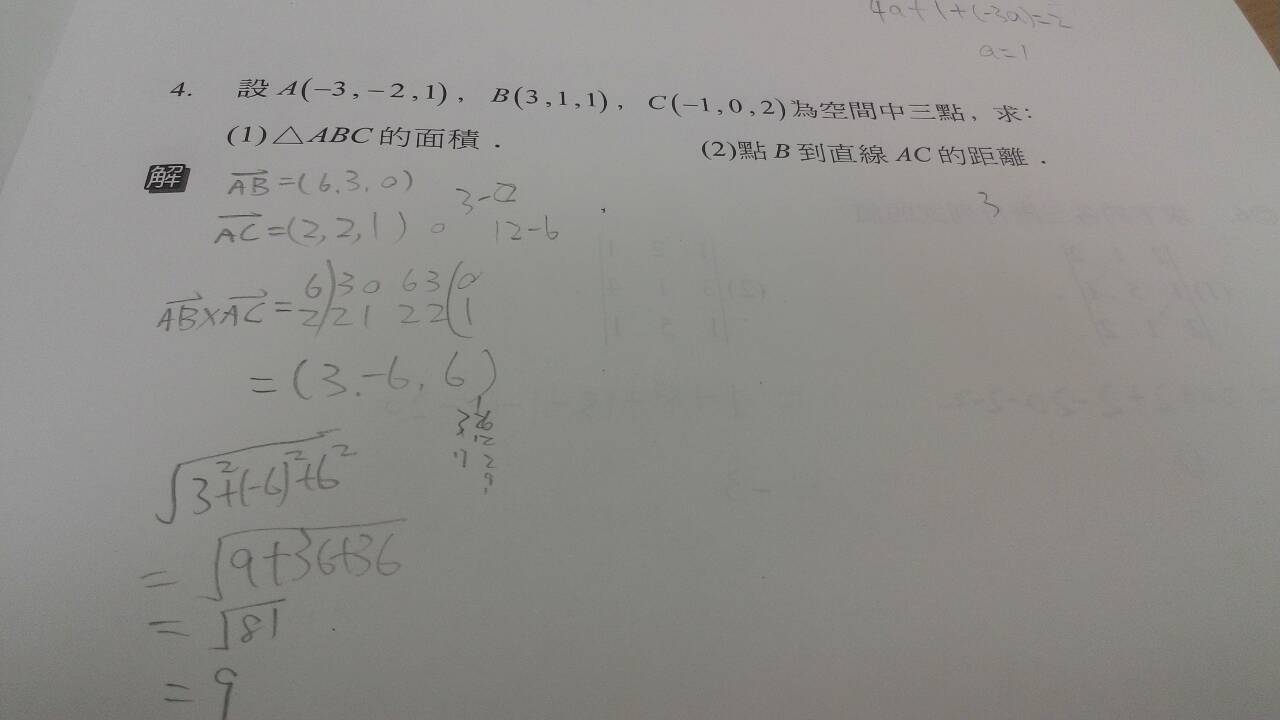 4a+1+(-3a)=2
a=1
4. 設 A(−3,−2,1), B(3,1,1), C(−1,0,2)為空間中三點, 求:
(1)△ABC的面積. (2)點B到直線AC的距離.
解 AB=(6,3,0) 3
AC=(2,2,1) 0 12-6
AB×AC= 6 3 0 6 3 0
2 2 1 2 2 1
=(3.-6,6)
√3²+(-6)²+6²
=√9+36+36
=√81
=9